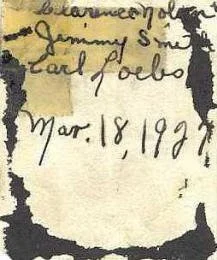 Clarence Nolan
Jimmy
Carl Loebs
Mar. 18, 1927